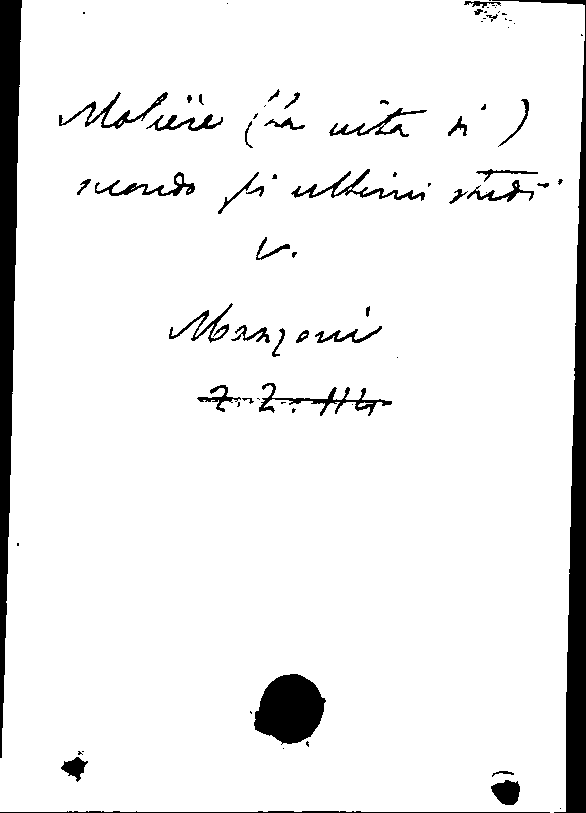 Molière (La vita di)
secondo gli ultimi studi
V.
Manzoni
Z. Z. 114